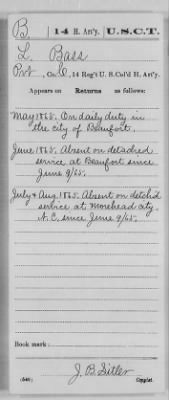 B | 14 H. Art'y. | U.S.C.T.
L. Bass
Pvt, Co. C, 14 Reg't U.S. Col'd H. Art'y.
Appears on Returns as follows:
May 1865. On daily duty in
the city of Beaufort.
June 1865. Absent on detached
service at Beaufort since
June 9/65.
July & Aug 1865. Absent on detch'd
service at Morehead city,
N.C. since June 9/65.
Book mark:
J. B. Sitler
(546) Copyist.